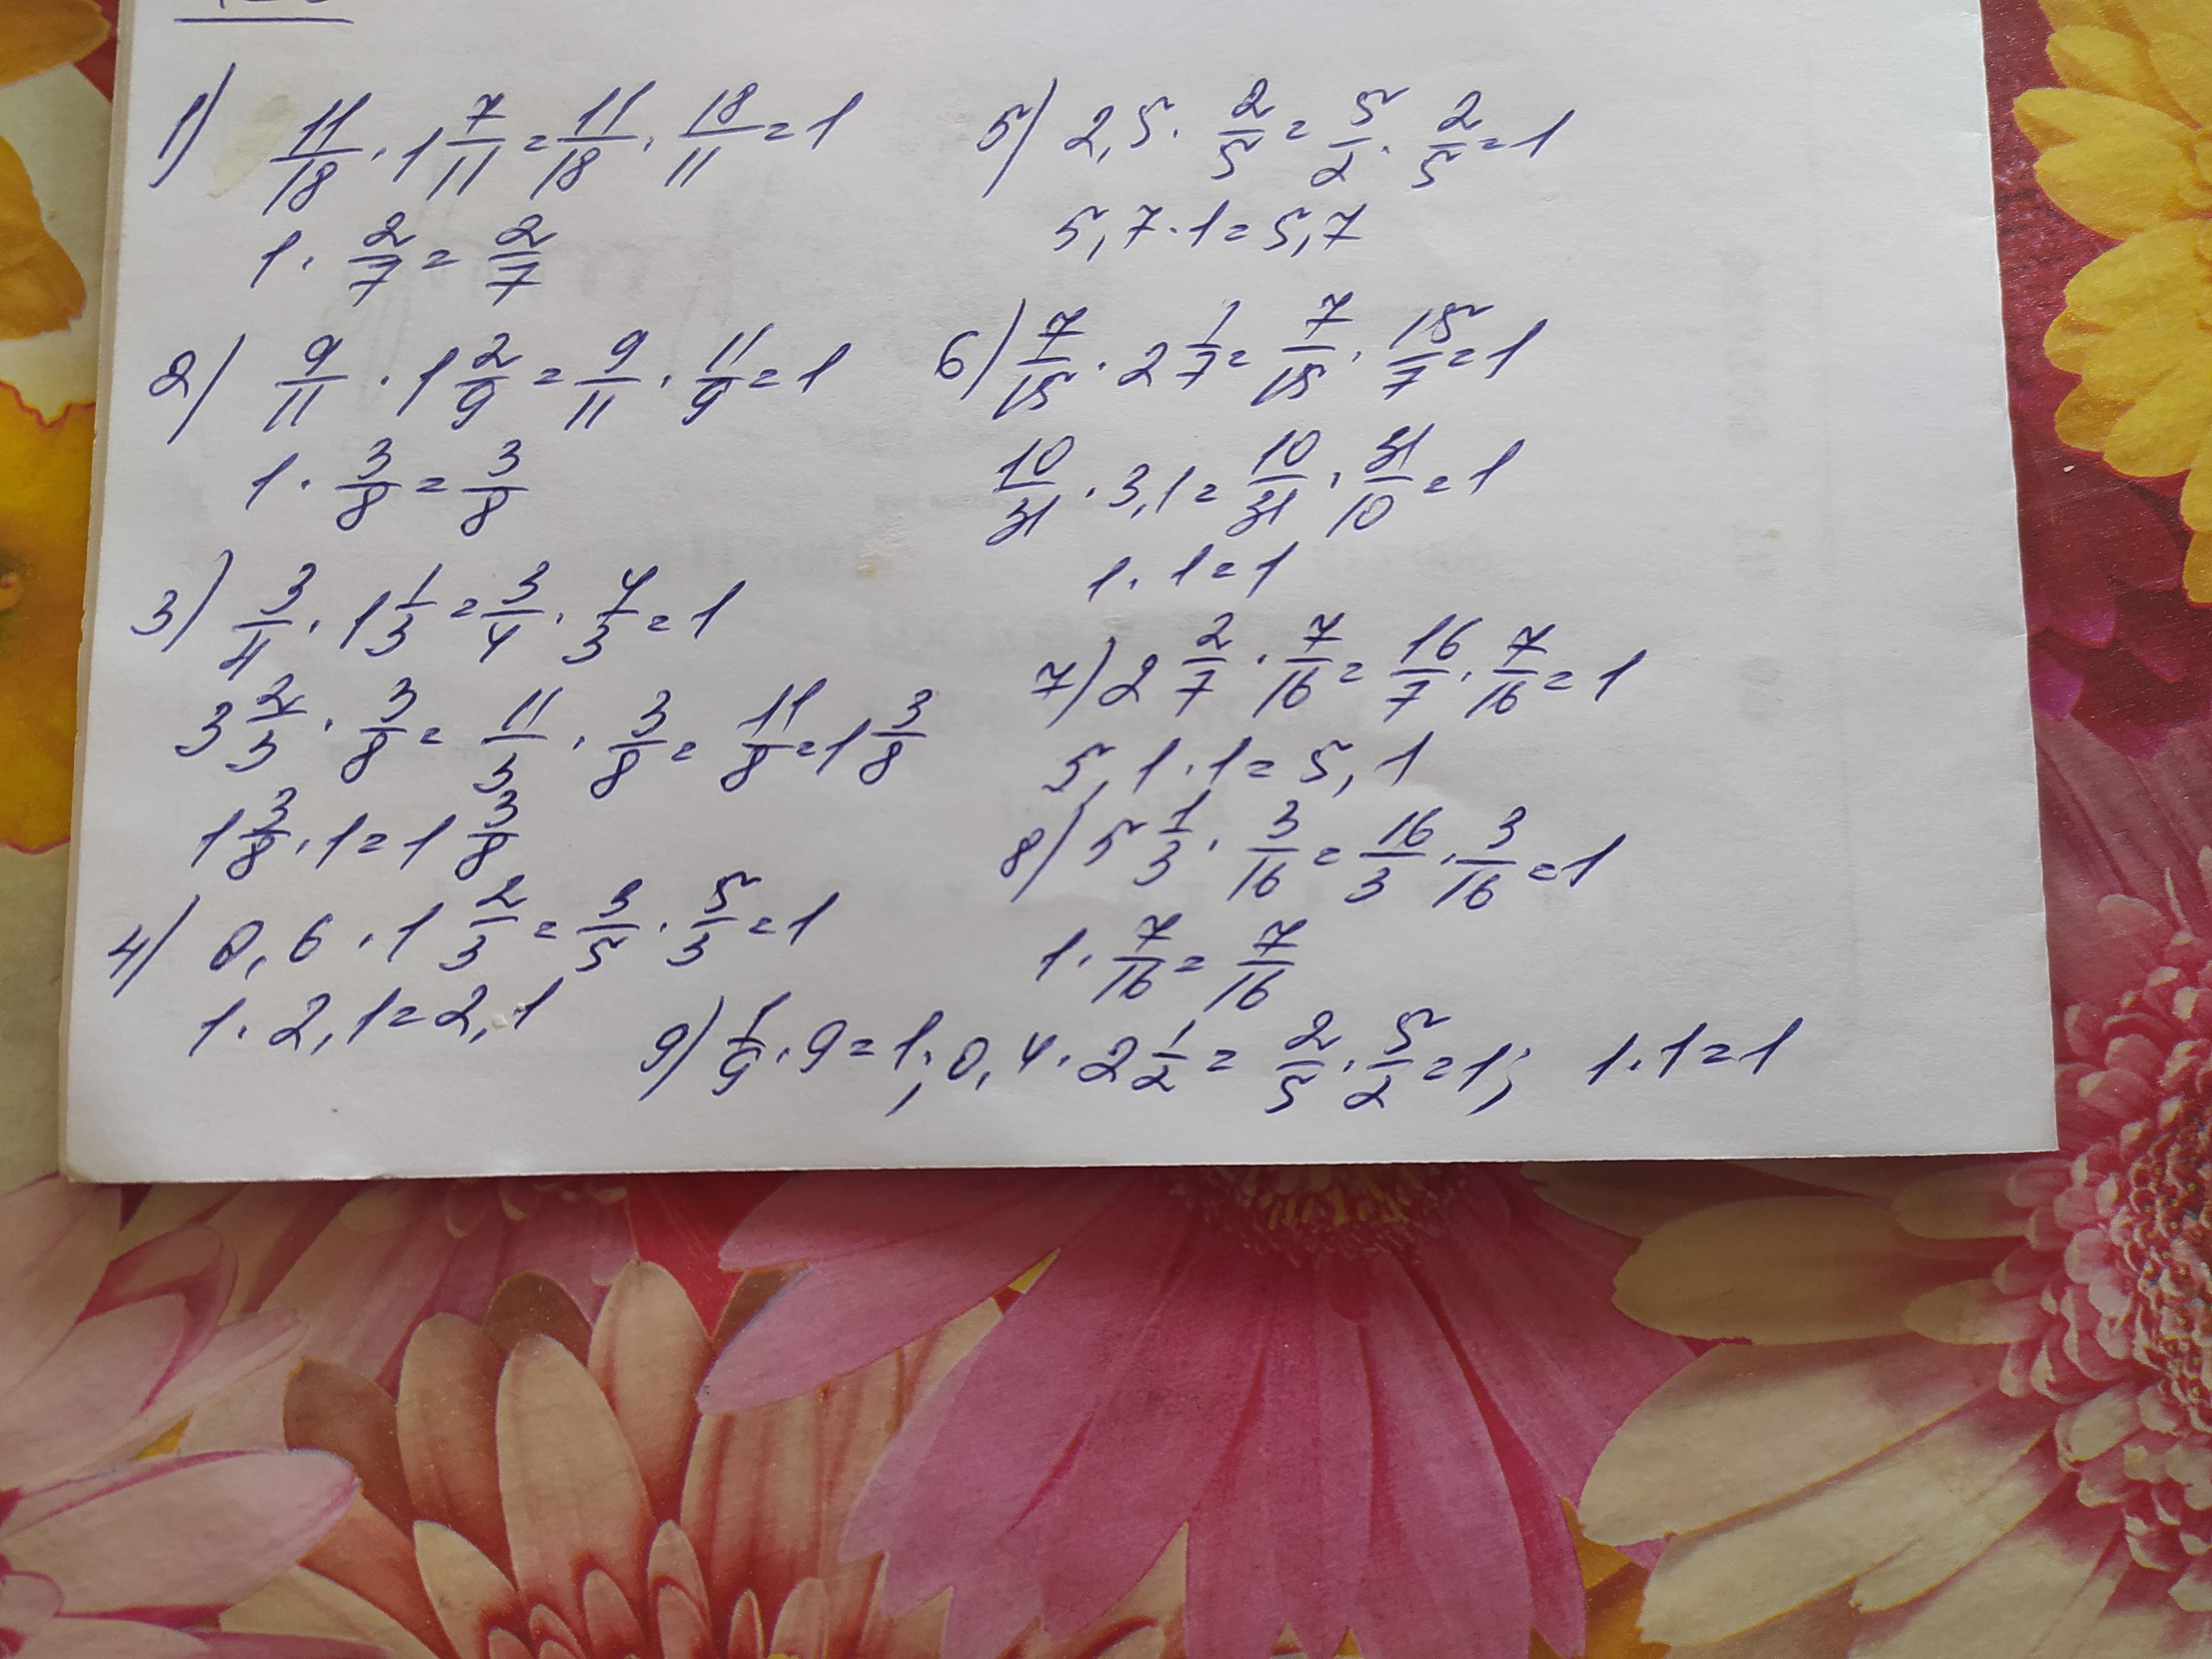 1) 11/18 · 1 7/11 = 11/18 · 18/11 = 1
1 · 2/7 = 2/7
2) 9/11 · 1 2/9 = 9/11 · 11/9 = 1
1 · 3/8 = 3/8
3) 3/4 · 1 1/3 = 3/4 · 4/3 = 1
3 2/3 · 3/8 = 11/3 · 3/8 = 11/8 = 1 3/8
1 3/8 · 1 = 1 3/8
4) 0,6 · 1 2/3 = 3/5 · 5/3 = 1
1 · 2,1 = 2,1
5) 2,5 · 2/5 = 5/2 · 2/5 = 1
5,7 · 1 = 5,7
6) 7/15 · 2 1/7 = 7/15 · 15/7 = 1
10/31 · 3,1 = 10/31 · 31/10 = 1
1 · 1 = 1
7) 2 2/7 · 7/16 = 16/7 · 7/16 = 1
5,1 · 1 = 5,1
8) 5 1/3 · 3/16 = 16/3 · 3/16 = 1
1 · 7/16 = 7/16
9) 1/9 · 9 = 1; 0,4 · 2 1/2 = 2/5 · 5/2 = 1; 1 · 1 = 1